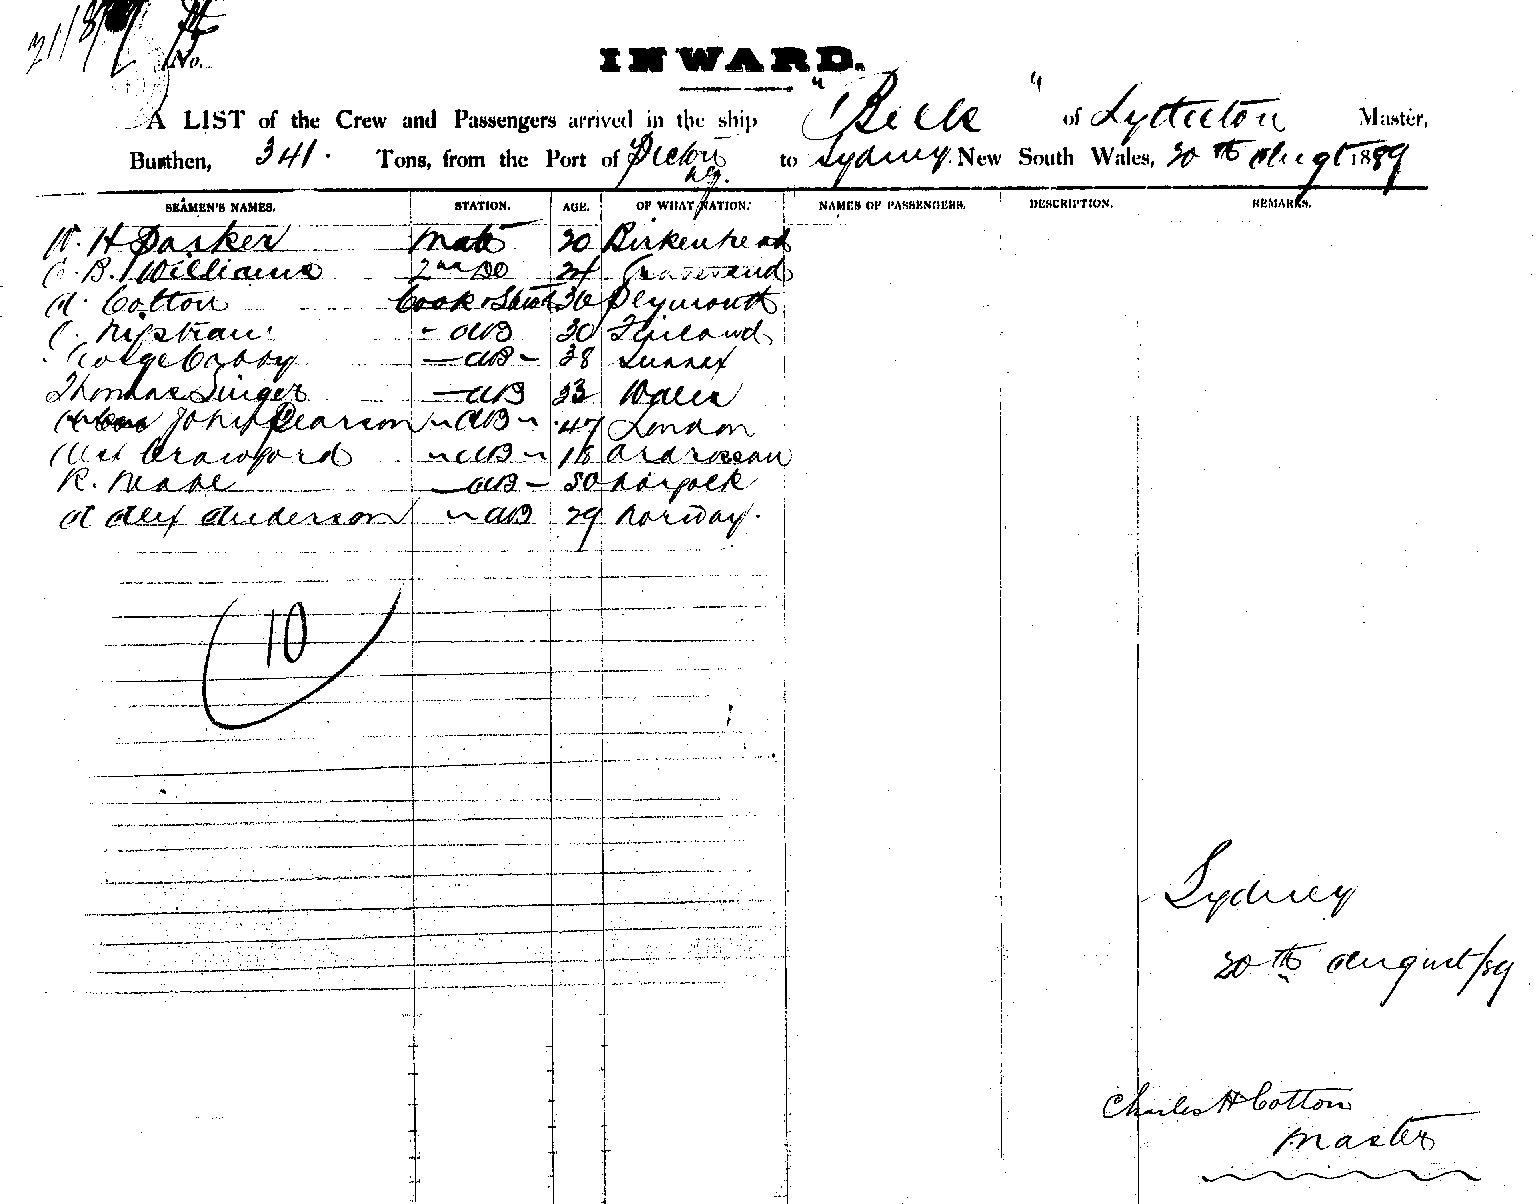 21/8/89
No.
INWARD.
A LIST of the Crew and Passengers arrived in the ship " " of Lyttelton Master,
Burthen, 341. Tons, from the Port of Picton to Sydney. New South Wales, 20th Augt 1889
SEAMEN'S NAMES. STATION. AGE. OF WHAT NATION. NAMES OF PASSENGERS. DESCRIPTION. REMARKS.
W. H Parker Mate 20 Birkenhead
C. B. Williams 2nd Do 24 Gravesend
A. Cotton Cook & Stwd 36 Plymouth
AB 30 Finland
AB 38 Sussex
Thomas Singer AB 33 Wales
John Pearson AB 47 London
Crawford AB 18 Ardrossan
R. AB 50 Norfolk
A Alex Anderson AB 29 Norway.
10
Sydney
20th August/89
Charles H Cotton
Master